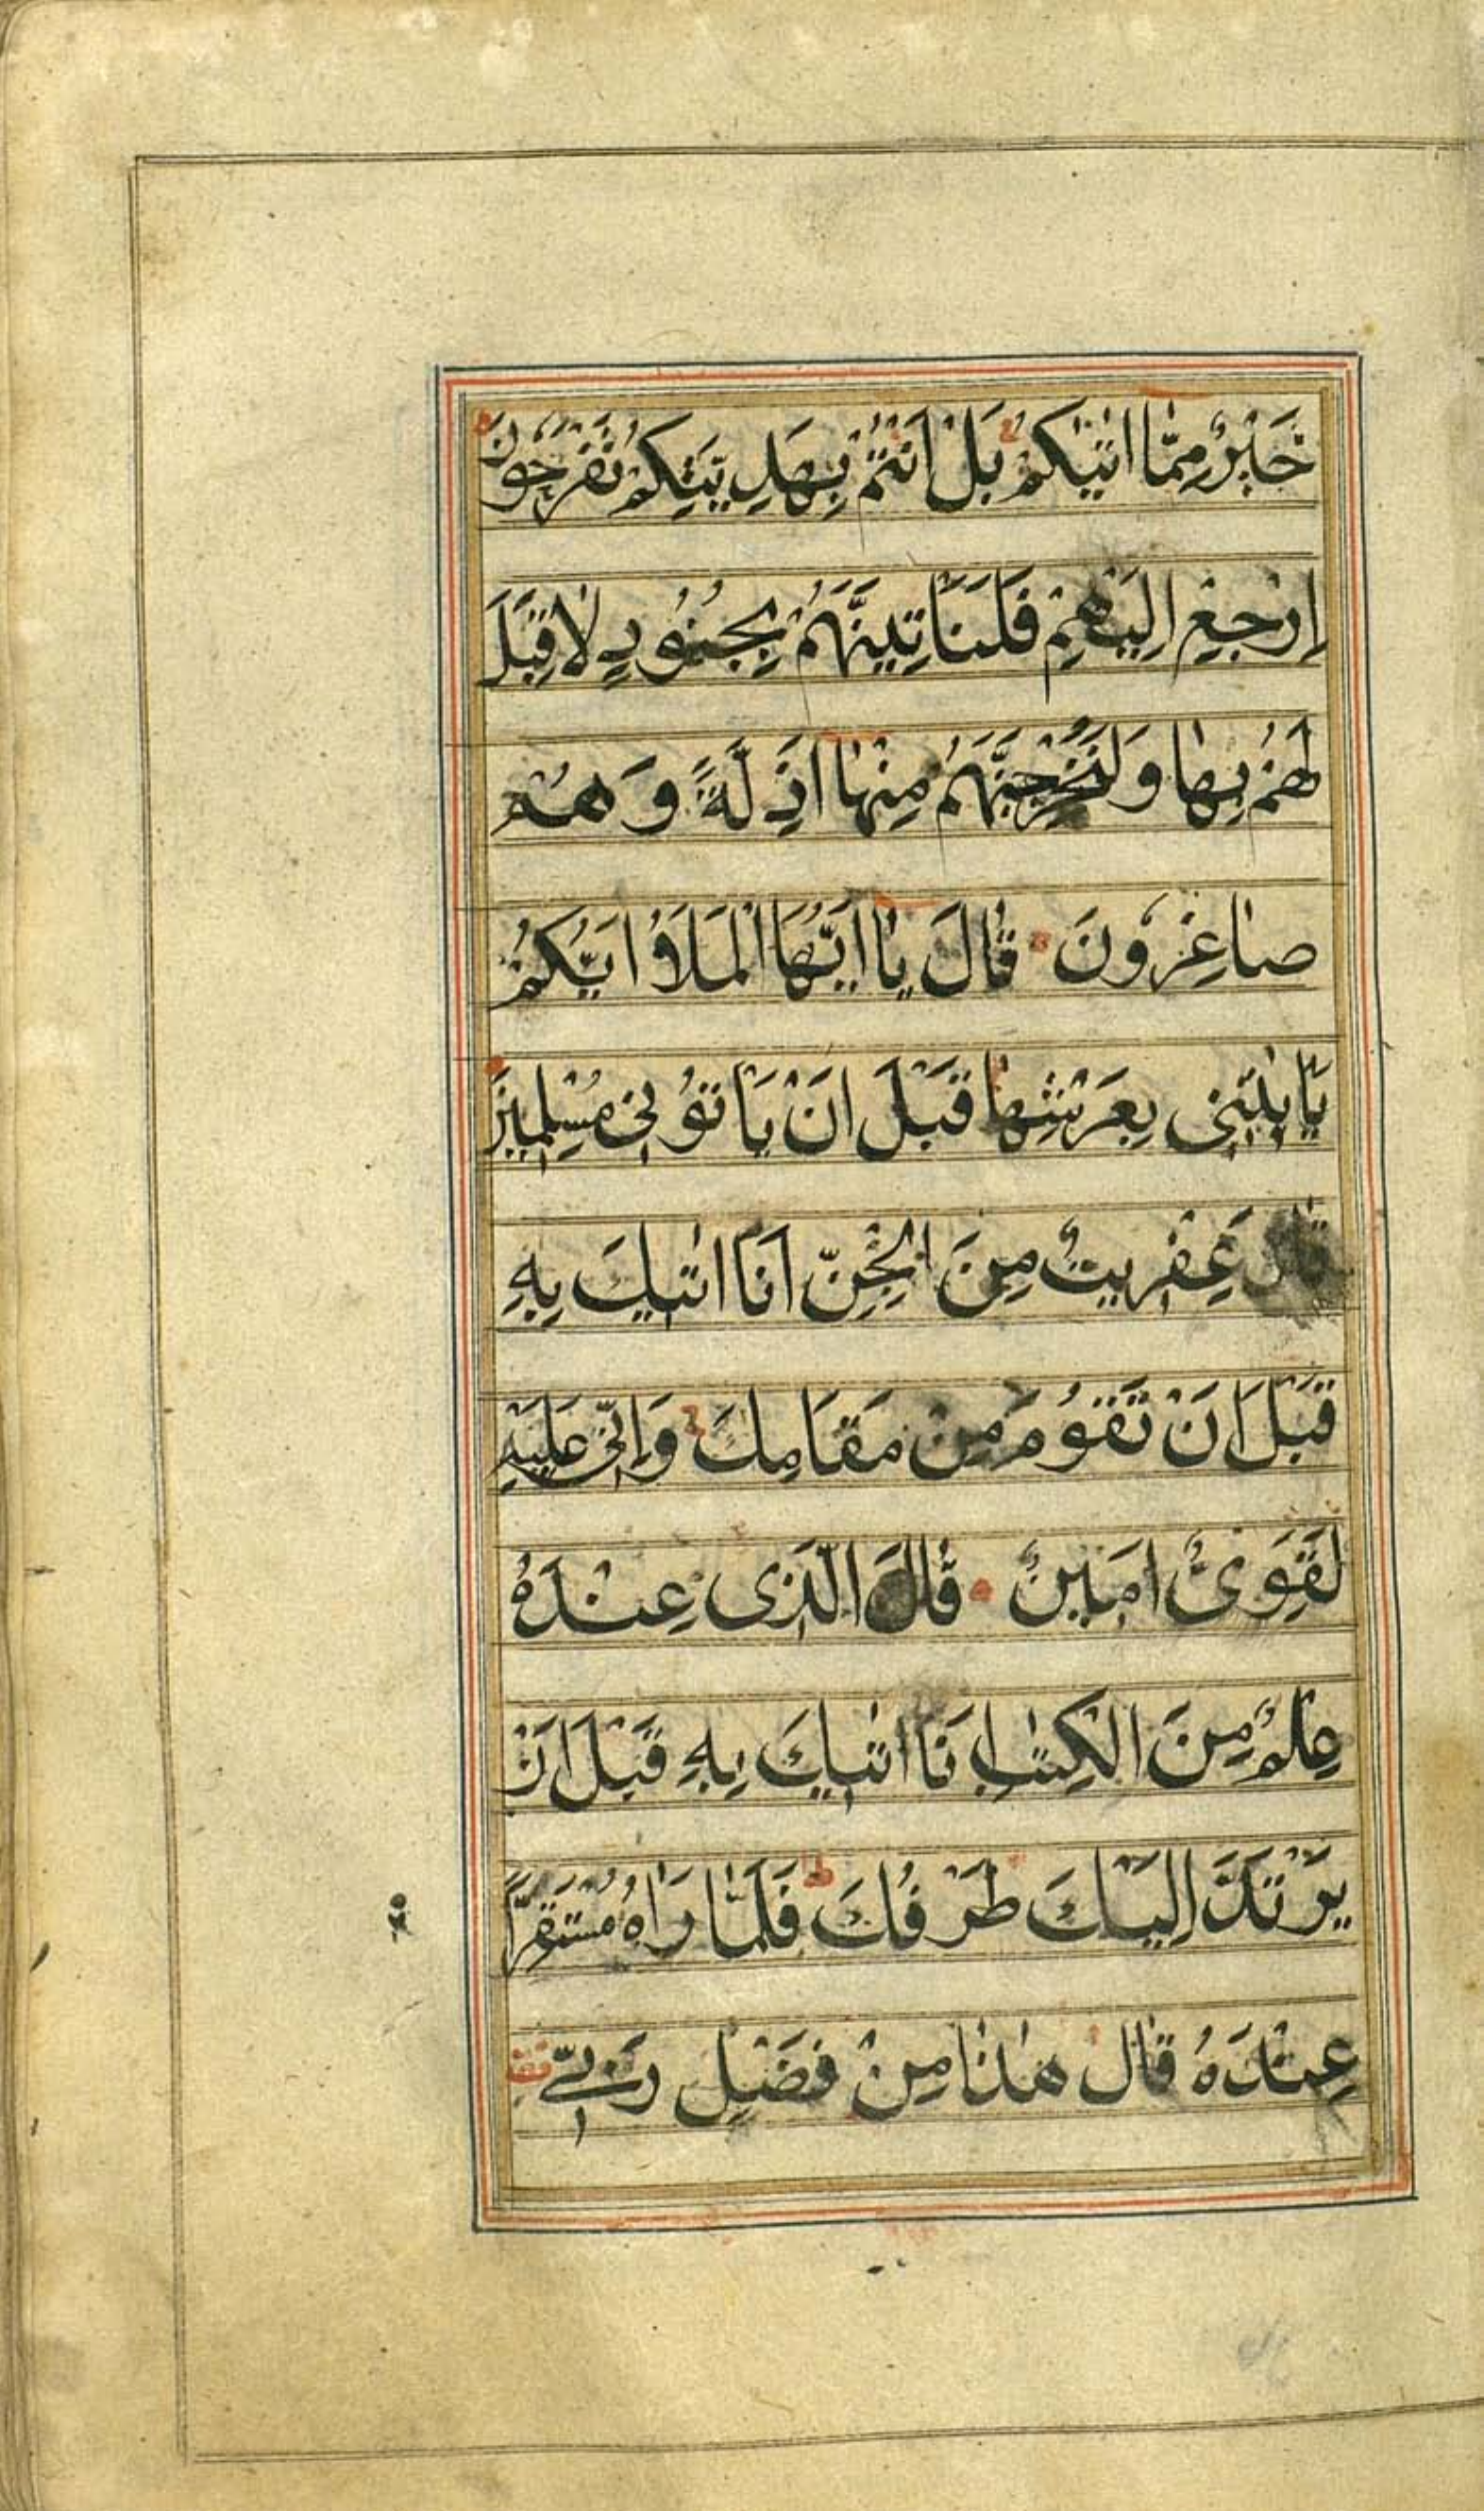 خَيْرٌ مِمَّا اٰتٰيكُمْ بَلْ اَنْتُمْ بِهَدِيَّتِكُمْ تَفْرَحُونَ
اِرْجِعْ اِلَيْهِمْ فَلَنَاْتِيَنَّهُمْ بِجُنُودٍ لَا قِبَلَ
لَهُمْ بِهَا وَلَنُخْرِجَنَّهُمْ مِنْهَا اَذِلَّةً وَهُمْ
صَاغِرُونَ قَالَ يَا اَيُّهَا الْمَلَؤُا اَيُّكُمْ
يَاْتِينِى بِعَرْشِهَا قَبْلَ اَنْ يَاْتُونِى مُسْلِمِينَ
قَالَ عِفْرِيتٌ مِنَ الْجِنِّ اَنَا اٰتِيكَ بِهِ
قَبْلَ اَنْ تَقُومَ مِنْ مَقَامِكَ وَاِنِّى عَلَيْهِ
لَقَوِىٌّ اَمِينٌ قَالَ الَّذِى عِنْدَهُ
عِلْمٌ مِنَ الْكِتٰبِ اَنَا اٰتِيكَ بِهِ قَبْلَ اَنْ
يَرْتَدَّ اِلَيْكَ طَرْفُكَ ط فَلَمَّا رَاٰهُ مُسْتَقِرًّا
عِنْدَهُ قَالَ هٰذَا مِنْ فَضْلِ رَبِّى